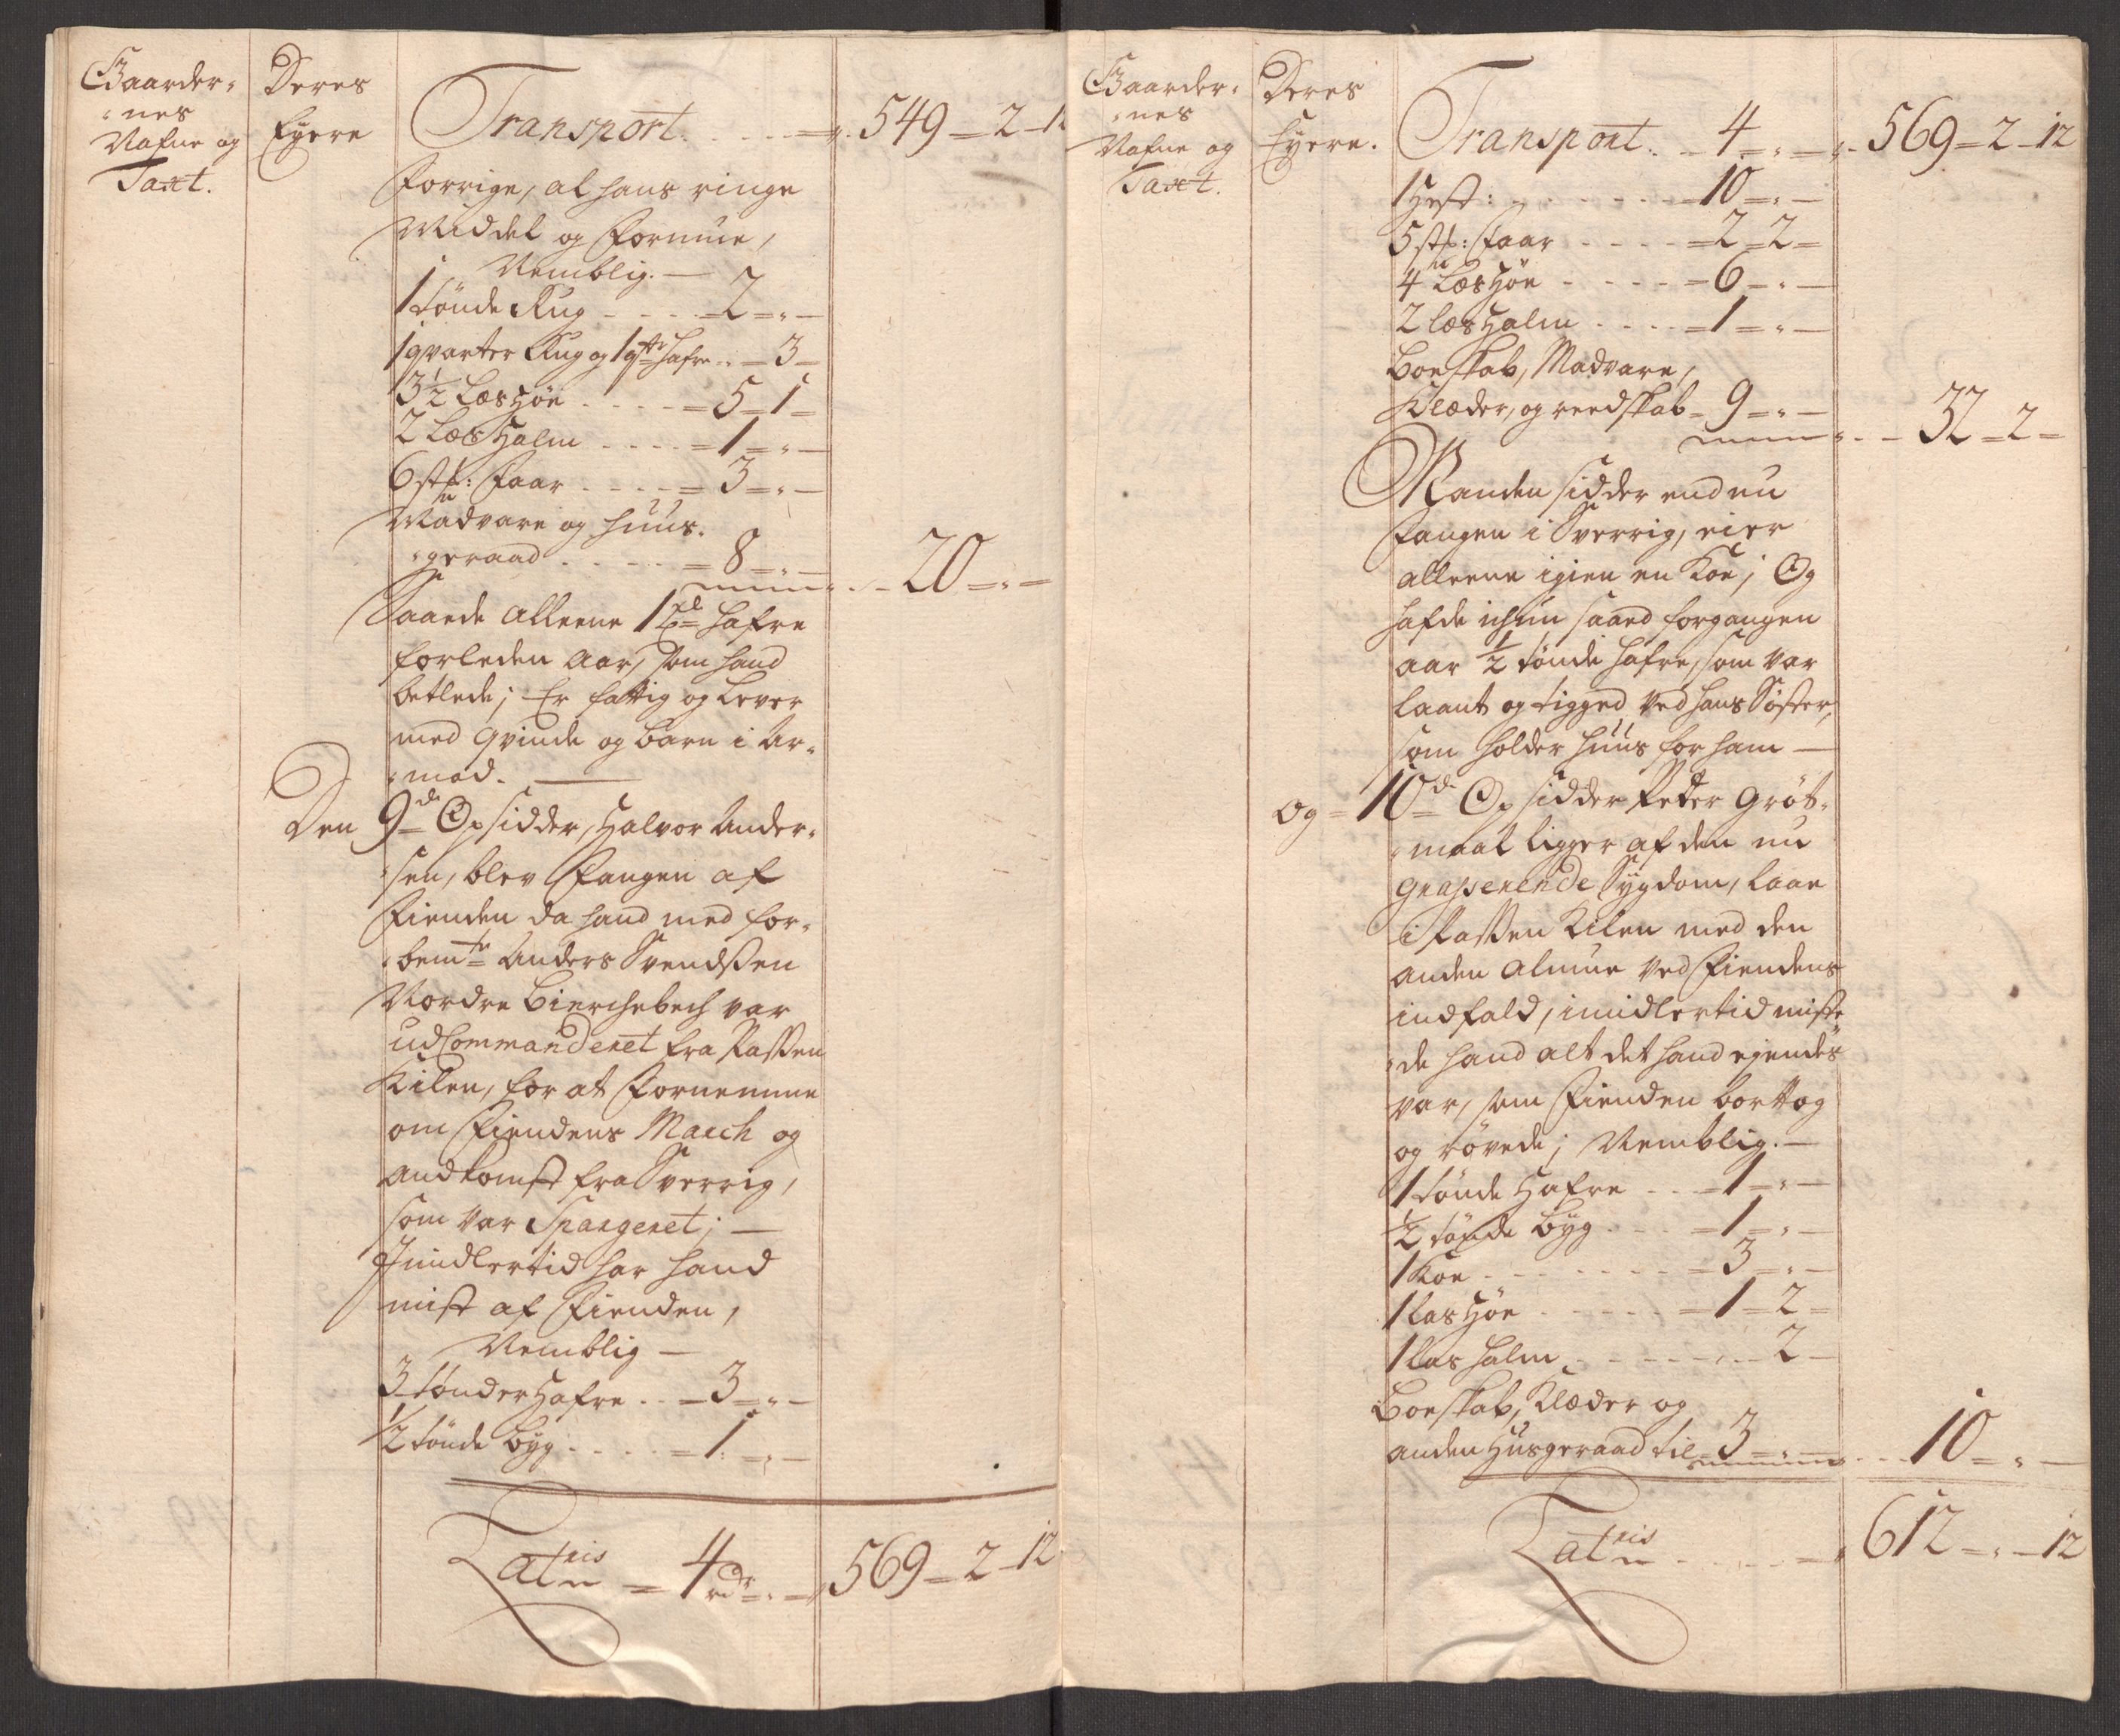 Gaarder-
-nes
Nafne og
Taxt.
Deres
Eyere
Transport . . . 549 - 2 - 12
Forrige, al hans ringe
Middel og Formue,
Nemblig. —
1 tönde Rug . . . 2 - " -
1 qvarter Rug og 1 qtr hafre . . - 3 -
3½ Læs Höe . . . . 5 - 1 -
2 Læs Halm . . . . 1 - " -
6 stk: Faar . . . . 3 - " -
Madvare og huus-
-geraad . . . . 8 - " - . . 20 - " -
Saaede alleene 1 hafre
forleden aar, som hand
betlede; Er fattig og Lever
med qvinde og barn i Ar-
-mod. —
Den 9de Opsidder, Halvor Ander-
-sen, blev Fangen af
Fienden da hand med for-
-bemte Anders Svendsen
Nordre Bierchebech var
udCommanderet fra Passen
Kilen, for at Fornemme
om Fiendens March og
andkomst fra Sverrig,
som var Spargeret; —
Imidlertid har hand
mist af Fienden,
Nemblig —
3 tönder Hafre . . 3 - " -
½ tönde byg . . . . 1 - " -
Lateris = 4 rdr - " - 569 - 2 - 12
Gaarder-
-nes
Nafne og
Taxt.
Deres
Eyere.
Transport . . 4 - " - . 569 - 2 - 12
1 Hest: . . . . 10 - " -
5 stk: Faar . . . . 2 - 2 -
4 Læs Höe . . . . 6 - " -
2 læs Halm . . . . 1 - " -
Boeskab, Madvare,
Klæder, og reedskab - 9 - " - . . 32 - 2 -
Manden sidder endnu
Fangen i Sverrig, eier
alleene igien en Koe; Og
hafde ichun saaed forgangen
aar ½ tönde hafre, som var
laant og tigged ved hans Söster,
som holder huus for ham —
Og - 10de Opsidder Peder Gröt-
-maal ligger af den nu
Grasserende Sygdom, laae
i Passen Kilen med den
anden almue ved Fiendens
indfald, imidlertid miste-
-de hand alt det hand eyendes
var, som Fienden borttog
og rövede; Nemblig. —
1 tönde Hafre . . 1 - " -
½ tönde byg . . . 1 - " -
1 Koe . . . . . 3 - " -
1 las Höe . . . . 1 - 2 -
1 las halm . . . . . 2 -
Boeskab, Klæder og
anden Husgeraad til - 3 - " - . . 10 - " -
Lateris . . . . 612 - " - 12